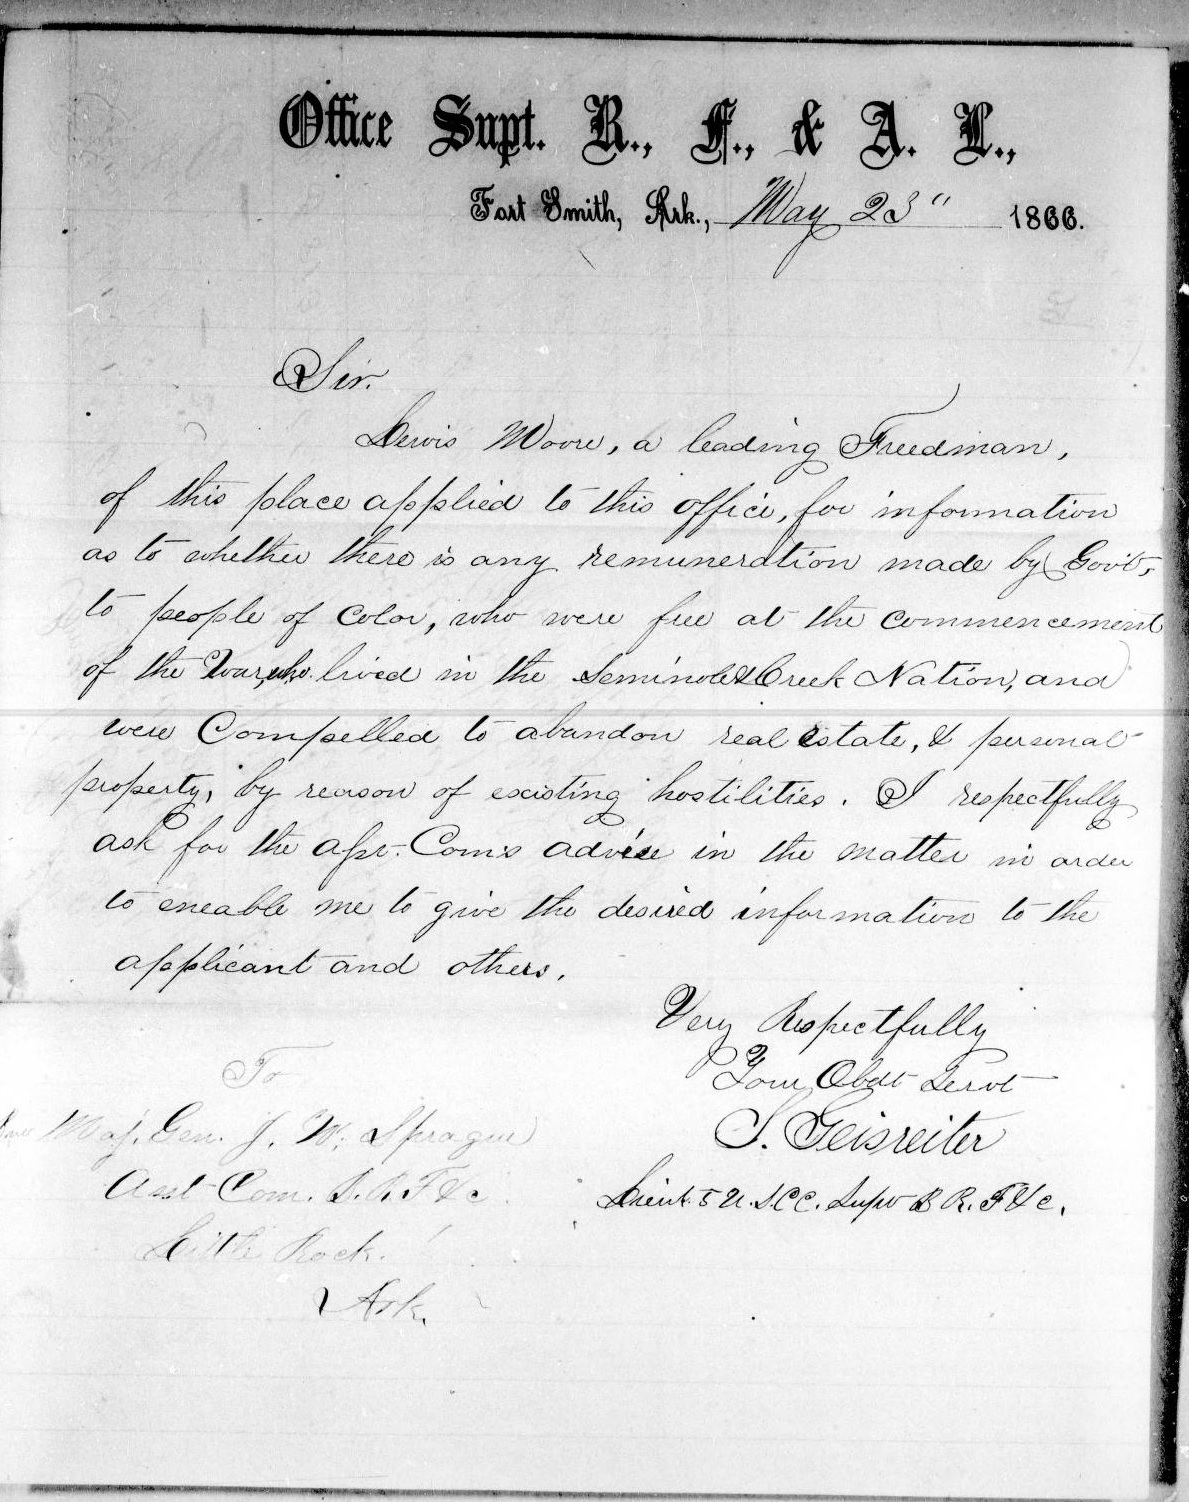 Office Supt. R., F., & A. L.,
Fort Smith, Ark., May 23" 1866.
Sir.
Lewis Moore, a leading Freedman,
of this place applied to this office, for information
as to whether there is any remuneration made by Govt,
to people of color, who were free at the commencement
of the War, who lived in the Seminole & Creek Nation, and
were Compelled to abandon real estate, & personal
property, by reason of existing hostilities. I respectfully
ask for the Asst. Com's advise in the matter in order
to eneable me to give the desired information to the
applicant and others.
Very Respectfully
Your Obdt Servt
S. Geisreiter
Lieut. 5 U.S.C.C. Supt B R. F & c.
To
Maj. Gen. J. W. Sprague
Asst Com. B. R. F & c.
Little Rock.
Ark.